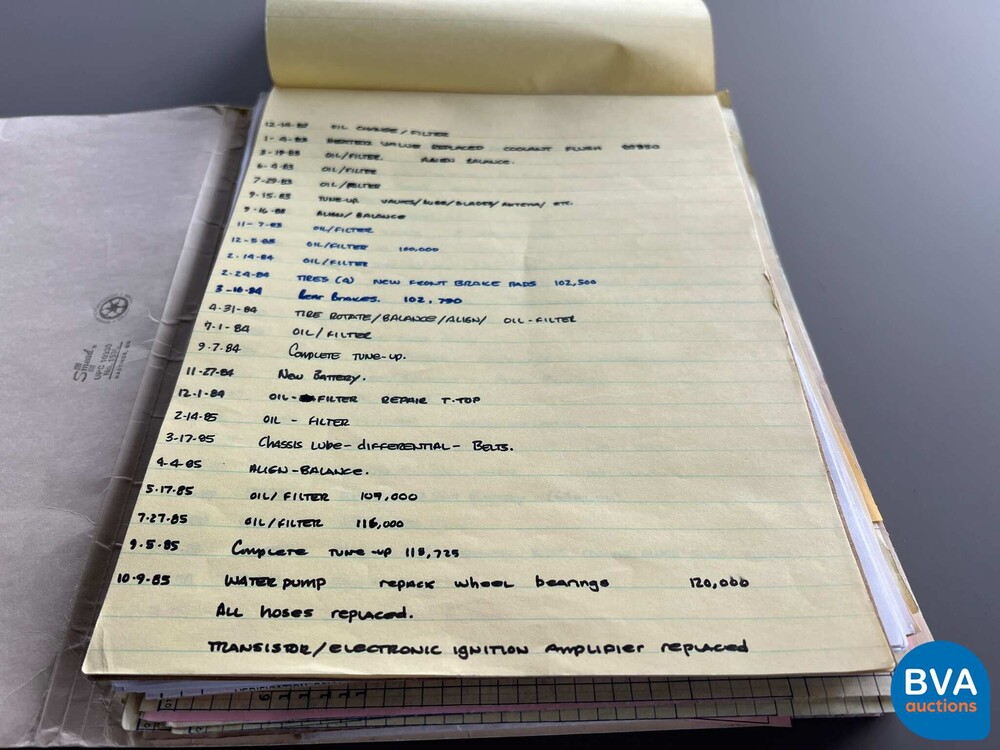 12-14-82 OIL CHANGE/FILTER
1-4-83 HEATER VALVE REPLACED COOLANT FLUSH
3-19-83 OIL/FILTER ALIGN BALANCE.
6-4-83 OIL/FILTER
7-29-83 OIL/FILTER
9-15-83 TUNE-UP VALVES/LUBE/BLADES/ANTENNA/ ETC.
9-16-83 ALIGN/BALANCE
11-7-83 OIL/FILTER
12-5-83 OIL/FILTER 100,000
2-14-84 OIL/FILTER
2-24-84 TIRES (4) NEW FRONT BRAKE PADS 102,500
3-10-84 Rear Brakes. 102,790
4-31-84 TIRE ROTATE/BALANCE/ALIGN/ OIL-FILTER
7-1-84 OIL/FILTER
9.7.84 COMPLETE TUNE-UP.
11-27-84 NEW BATTERY.
12.1-84 OIL-FILTER REPAIR T-TOP
2-14-85 OIL - FILTER
3-17-85 CHASSIS LUBE-DIFFERENTIAL- BELTS.
4-4-85 ALIGN-BALANCE.
5.17-85 OIL/FILTER 109,000
7-27-85 OIL/FILTER 116,000
9.5.85 Complete TUNE-UP 118,725
10-9-85 WATER PUMP repack wheel bearings 120,000
ALL hoses replaced.
TRANSISTOR/ELECTRONIC IGNITION AMPLIFIER replaced
Smead
UPC 10330
HASTINGS, MN
BVA
auctions